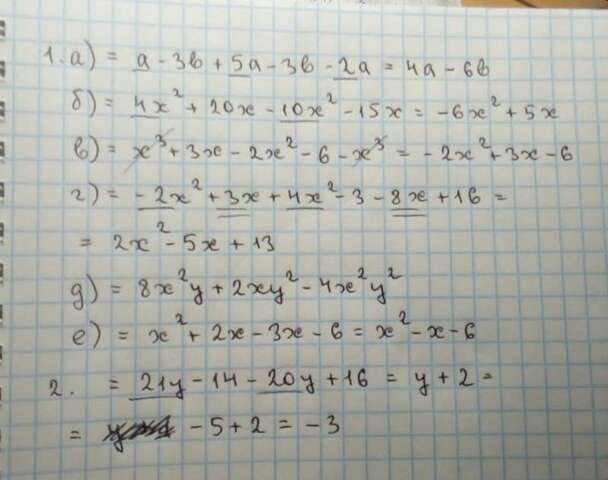 1. а) = a - 3b + 5a - 3b - 2a = 4a - 6b
б) = 4x² + 20x - 10x² - 15x = -6x² + 5x
в) = x³ + 3x - 2x² - 6 - x³ = -2x² + 3x - 6
г) = -2x² + 3x + 4x² - 3 - 8x + 16 =
= 2x² - 5x + 13
д) = 8x²y + 2xy² - 4x²y²
е) = x² + 2x - 3x - 6 = x² - x - 6
2. = 21y - 14 - 20y + 16 = y + 2 =
= -5 + 2 = -3